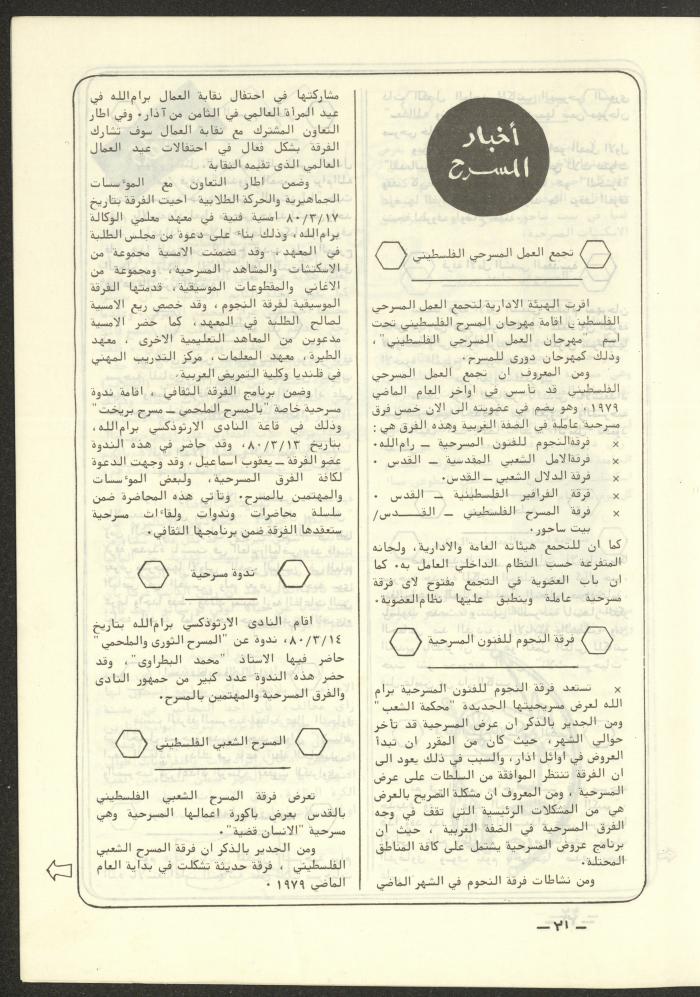 أخبار
المسرح
تجمع العمل المسرحي الفلسطيني
اقرت الهيئة الادارية لتجمع العمل المسرحي
الفلسطيني اقامة مهرجان المسرح الفلسطيني تحت
اسم "مهرجان العمل المسرحي الفلسطيني" ،
وذلك كمهرجان دورى للمسرح٠
ومن المعروف ان تجمع العمل المسرحي
الفلسطيني قد تأسس في اواخر العام الماضي
١٩٧٩، وهو يضم في عضويته الى الان خمس فرق
مسرحية عاملة في الضفة الغربية وهذه الفرق هي :
× فرقةالنجوم للفنون المسرحية ــ رام‌الله٠
× فرقةالامل الشعبي المقدسية ــ القدس ٠
× فرقة الدلال الشعبي ــ القدس٠
× فرقة الفرافير الفلسطينية ــ القدس ٠
× فرقة المسرح الفلسطيني ــ القــدس/
بيت ساحور٠
كما ان للتجمع هيئاته العامة والادارية، ولجانه
المتفرعة حسب النظام الداخلي العامل به٠ كما
ان باب العضوية في التجمع مفتوح لاى فرقة
مسرحية عاملة وينطبق عليها نظام‌العضوية٠
فرقة النجوم للفنون المسرحية
× تستعد فرقة النجوم للفنون المسرحية برام
الله لعرض مسرحيتها الجديدة "محكمة الشعب"
ومن الجدير بالذكر ان عرض المسرحية قد تأخر
حوالي الشهر، حيث كان من المقرر ان تبدأ
العروض في اوائل اذار، والسبب في ذلك يعود الى
ان الفرقة تنتظر الموافقة من السلطات على عرض
المسرحية ، ومن المعروف ان مشكلة التصريح بالعرض
هي من المشكلات الرئيسية التي تقف في وجه
الفرق المسرحية في الضفة الغربية ، حيث ان
برنامج عروض المسرحية يشتمل على كافة المناطق
المحتلة٠
ومن نشاطات فرقة النجوم في الشهر الماضي
مشاركتها في احتفال نقابة العمال برام‌الله في
عيد المرأة العالمي في الثامن من آذار٠ وفي اطار
التعاون المشترك مع نقابة العمال سوف تشارك
الفرقة بشكل فعال في احتفالات عيد العمال
العالمي الذى تقيمه النقابة
وضمن اطار التعاون مع الموءسسات
الجماهيرية والحركة الطلابية ، احيت الفرقة بتاريخ
٨٠/٣/١٧ امسية فنية في معهد معلمي الوكالة
برام‌الله، وذلك بناء على دعوة من مجلس الطلبة
في المعهد، وقد تضمنت الامسية مجموعة من
الاسكتشات والمشاهد المسرحية، ومجموعة من
الاغاني والمقطوعات الموسيقية، قدمتها الفرقة
الموسيقية لفرقة النجوم، وقد خصص ريع الامسية
لصالح الطلبة في المعهد، كما حضر الامسية
مدعوين من المعاهد التعليمية الاخرى ، معهد
الطيرة، معهد المعلمات، مركز التدريب المهني
في قلنديا وكلية التمريض العربية٠
وضمن برنامج الفرقة الثقافي ، اقامة ندوة
مسرحية خاصة "بالمسرح الملحمي ــ مسرح بريخت"
وذلك في قاعة النادى الارثوذكسي برام‌الله،
بتاريخ ٨٠/٣/١٣، وقد حاضر في هذه الندوة
عضو الفرقة ــ يعقوب اسماعيل، وقد وجهت الدعوة
لكافة الفرق المسرحية، ولبعض الموءسسات
والمهتمين بالمسرح٠ وتأتي هذه المحاضرة ضمن
سلسلة محاضرات وندوات ولقاءات مسرحية
ستعقدها الفرقة ضمن برنامجها الثقافي٠
ندوة مسرحية
اقام النادى الارثوذكسي برام‌الله بتاريخ
٨٠/٣/١٤، ندوة عن "المسرح الثورى والملحمي"
حاضر فيها الاستاذ "محمد البطراوى"، وقد
حضر هذه الندوة عدد كبير من جمهور النادى
والفرق المسرحية والمهتمين بالمسرح٠
المسرح الشعبي الفلسطيني
تعرض فرقة المسرح الشعبي الفلسطيني
بالقدس بعرض باكورة اعمالها المسرحية وهي
مسرحية "الانسان قضية"٠
ومن الجدير بالذكر ان فرقة المسرح الشعبي
الفلسطيني ، فرقة حديثة تشكلت في بداية العام
الماضي ١٩٧٩ ٠
ــ ٢١ ــ